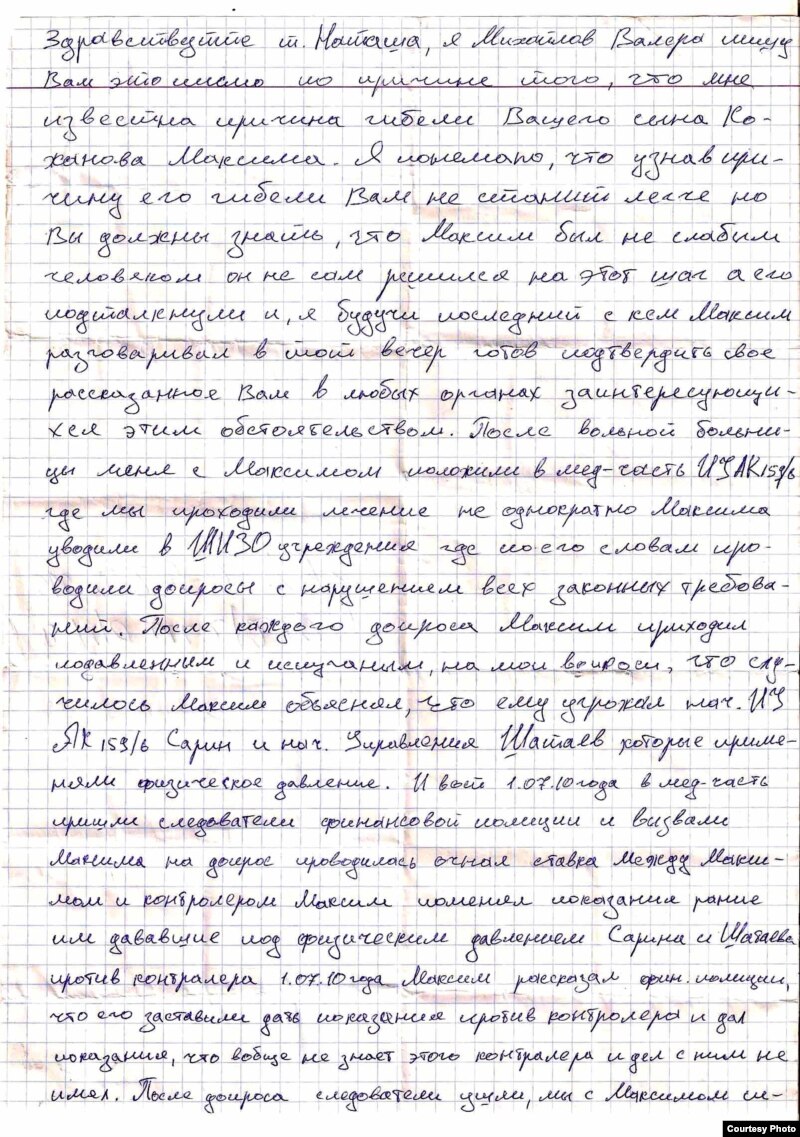 Здравствуйте т. Наташа, я Михайлов Валера пишу
Вам это письмо по причине того, что мне
известна причина гибели Вашего сына Ко-
жанова Максима. Я понемаю, что узнав при-
чину его гибели Вам не станит легче но
Вы должны знать, что Максим был не слабым
человеком он не сам решился на этот шаг а его
подсталкнули и, я будучи последний с кем Максим
разговаривал в тот вечер готов подтвердить свое
рассказанное Вам в любых органах заинтересующи-
хся этим обстоятельством. После вольной больни-
цы меня с Максимом положили в мед-часть ИЗ АК159/6
где мы проходили лечение не однократно Максима
уводили в ШИЗО учреждения где по его словам про-
водили допросы с нарушением всех законных требова-
ний. После каждого допроса Максим приходил
подавленным и испуганым, на мои вопросы, что слу-
чилось Максим объяснял, что ему угрожал нач. ИЗ
АК159/6 Сарин и нач. Управления Шатаев которые приме-
няли физическое давление. И вот 1.07.10 года в мед-часть
пришли следователи финансовой полиции и вызвали
Максима на допрос проводилась очная ставка между Макси-
мом и контролером Максим поменял показания рание
им дававшие под физическим давлением Сарина и Шатаева
против контралера 1.07.10 года Максим рассказал фин. полиции,
что его заставили дать показания против контролера и дал
показания, что вобще не знает этого контралера и дел с ним не
имел. После допроса следователи ушли, мы с Максимом си-
Courtesy Photo